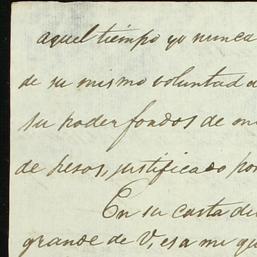 aquel tiempo yo nunca
de su mismo voluntad
su poder fondos de
de pesos, justificado por
En su carta de
grande de V, es a me